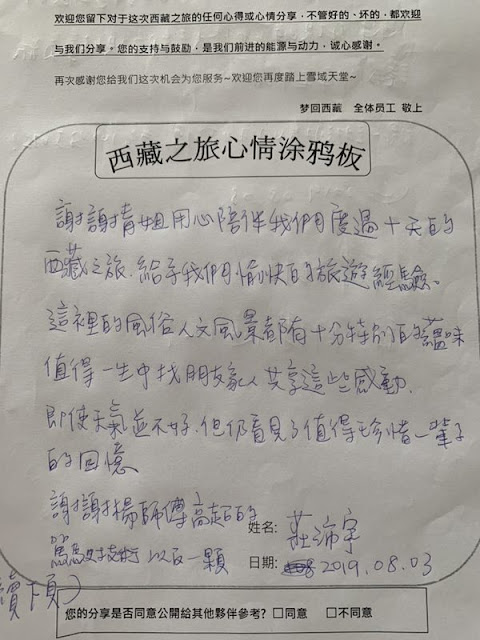 欢迎您留下对于这次西藏之旅的任何心得或心情分享，不管好的、坏的，都欢迎
与我们分享。您的支持与鼓励，是我们前进的能源与动力，诚心感谢。
再次感谢您给我们这次机会为您服务~欢迎您再度踏上雪域天堂~
梦回西藏 全体员工 敬上
西藏之旅心情涂鸦板
謝謝青姐用心陪伴我們度過十天的
西藏之旅，給予我們愉快的旅遊經驗。
這裡的風俗人文風景都有十分特別的韻味
值得一生中找朋友家人共享這些感動，
即使天氣並不好，但仍看見了值得珍惜一輩子
的回憶
謝謝楊師傅高超的
姓名：莊沛宇
駕駛技術 以及一顆
日期： 2019.08.03
續下頁）
您的分享是否同意公開給其他夥伴參考？□同意 □不同意